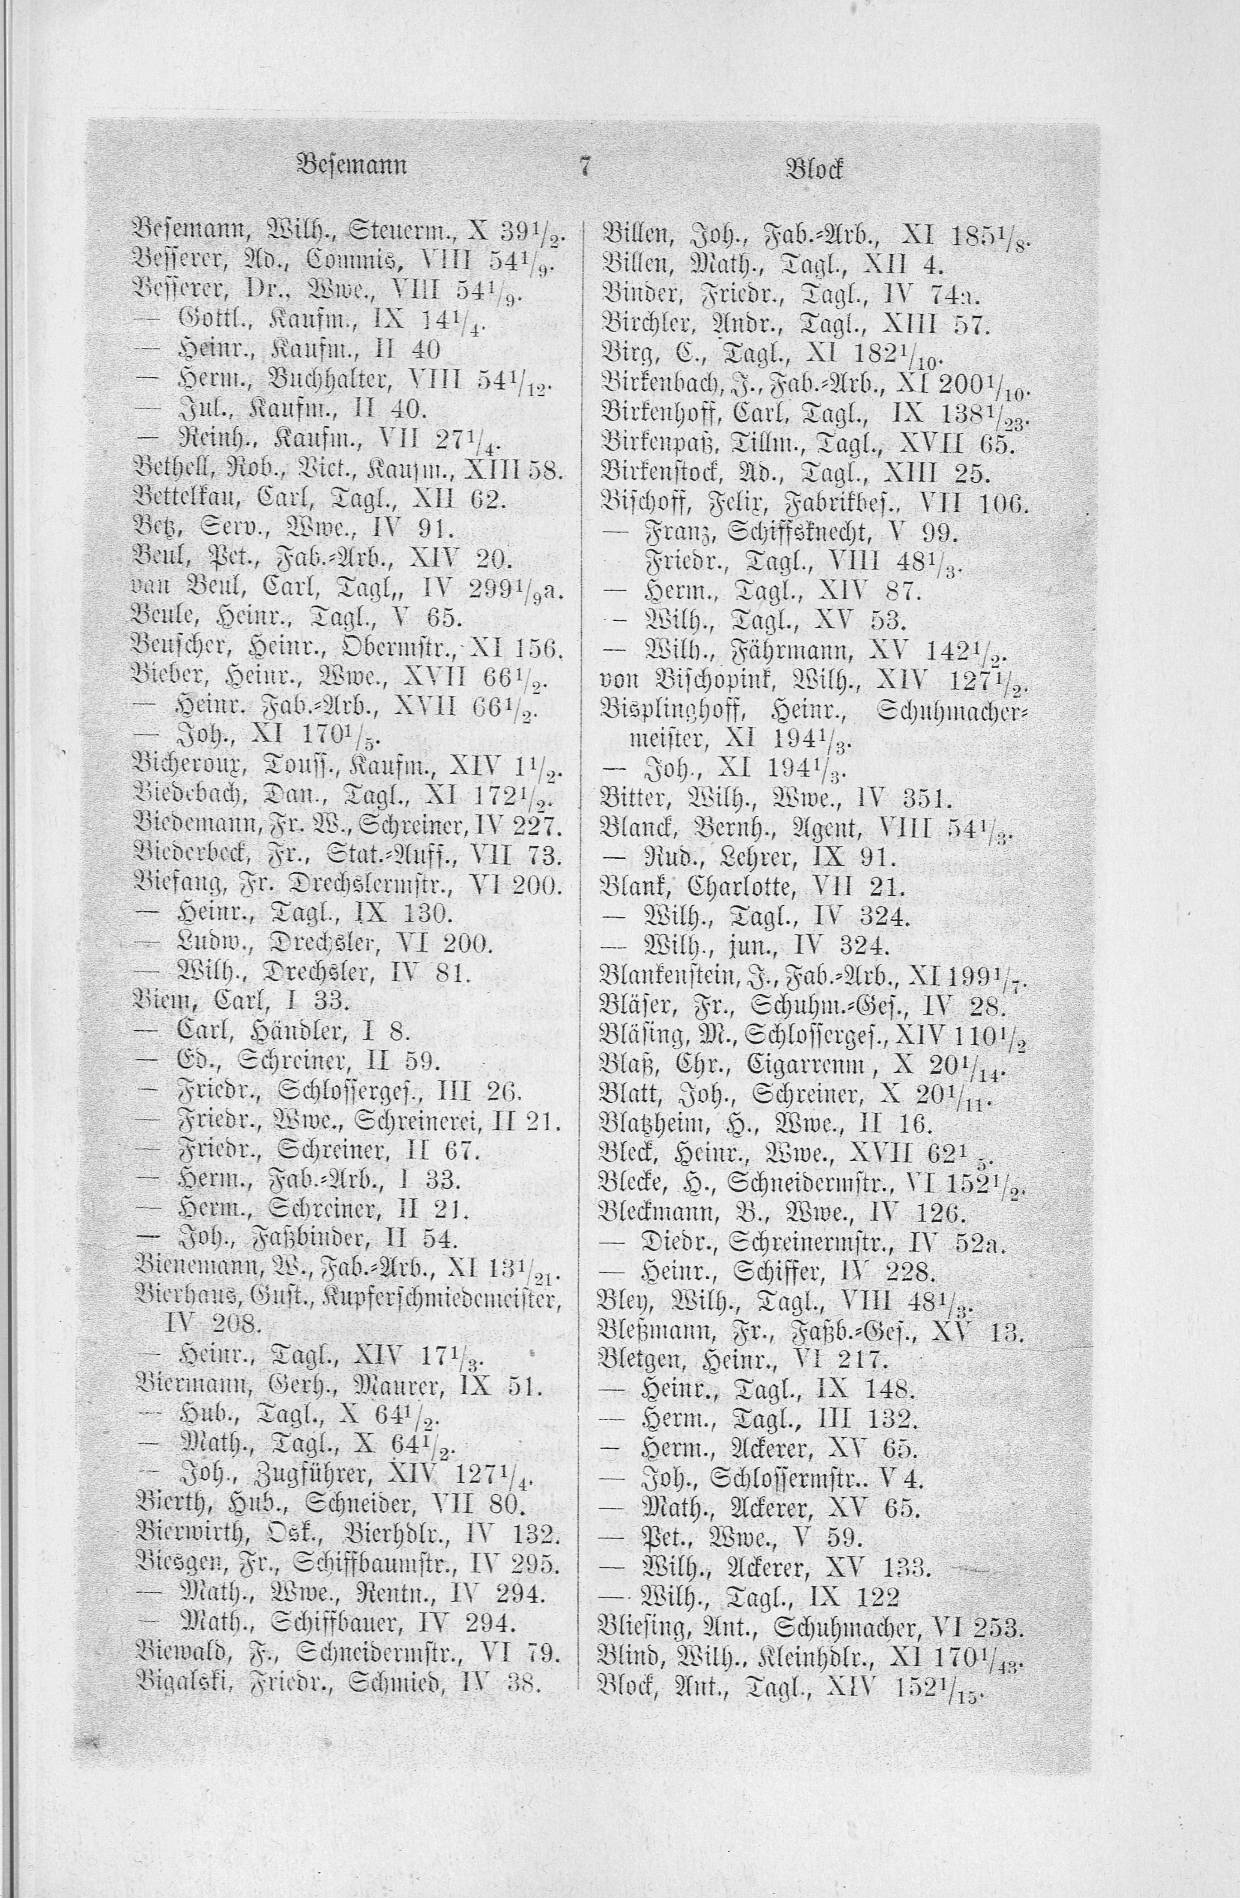 Besemann
7
Block
Besemann, Wilh., Steuerm., X 39 1/2.
Besserer, Ad., Commis, VIII 54 1/9.
Besserer, Dr., Wwe., VIII 54 1/9.
— Gottl., Kaufm., IX 14 1/4.
— Heinr., Kaufm., II 40
— Herm., Buchhalter, VIII 54 1/12.
— Jul., Kaufm., II 40.
— Reinh., Kaufm., VII 27 1/4.
Bethell, Rob., Vict., Kaufm., XIII 58.
Bettelkau, Carl, Tagl., XII 62.
Betz, Serv., Wwe., IV 91.
Beul, Pet., Fab.-Arb., XIV 20.
van Beul, Carl, Tagl,, IV 299 1/9a.
Beule, Heinr., Tagl., V 65.
Beuscher, Heinr., Obermstr., XI 156.
Bieber, Heinr., Wwe., XVII 66 1/2.
— Heinr. Fab.-Arb., XVII 66 1/2.
— Joh., XI 170 1/5.
Bicheroux, Touss., Kaufm., XIV 1 1/2.
Biedebach, Dan., Tagl., XI 172 1/2.
Biedemann, Fr. W., Schreiner, IV 227.
Biederbeck, Fr., Stat.-Auff., VII 73.
Biefang, Fr. Drechslermstr., VI 200.
— Heinr., Tagl., IX 130.
— Ludw., Drechsler, VI 200.
— Wilh., Drechsler, IV 81.
Biem, Carl, I 33.
— Carl, Händler, I 8.
— Ed., Schreiner, II 59.
— Friedr., Schlosserges., III 26.
— Friedr., Wwe., Schreinerei, II 21.
— Friedr., Schreiner, II 67.
— Herm., Fab.-Arb., I 33.
— Herm., Schreiner, II 21.
— Joh., Faßbinder, II 54.
Bienemann, W., Fab.-Arb., XI 13 1/21.
Bierhaus, Gust., Kupferschmiedemeister,
IV 208.
— Heinr., Tagl., XIV 17 1/3.
Biermann, Gerh., Maurer, IX 51.
— Hub., Tagl., X 64 1/2.
— Math., Tagl., X 64 1/2.
— Joh., Zugführer, XIV 127 1/4.
Bierth, Hub., Schneider, VII 80.
Bierwirth, Osk., Bierhdlr., IV 132.
Biesgen, Fr., Schiffbaumstr., IV 295.
— Math., Wwe., Rentn., IV 294.
— Math., Schiffbauer, IV 294.
Biewald, F., Schneidermstr., VI 79.
Bigalski, Friedr., Schmied, IV 38.
Billen, Joh., Fab.-Arb., XI 185 1/8.
Billen, Math., Tagl., XII 4.
Binder, Friedr., Tagl., IV 74a.
Birchler, Andr., Tagl., XIII 57.
Birg, C., Tagl., XI 182 1/10.
Birkenbach, J., Fab.-Arb., XI 200 1/10.
Birkenhoff, Carl, Tagl., IX 138 1/23.
Birkenpaß, Tillm., Tagl., XVII 65.
Birkenstock, Ad., Tagl., XIII 25.
Bischoff, Felix, Fabrikbes., VII 106.
— Franz, Schiffsknecht, V 99.
Friedr., Tagl., VIII 48 1/3.
— Herm., Tagl., XIV 87.
— Wilh., Tagl., XV 53.
— Wilh., Fährmann, XV 142 1/2.
von Bischopink, Wilh., XIV 127 1/2.
Bisplinghoff, Heinr., Schuhmacher-
meister, XI 194 1/3.
— Joh., XI 194 1/3.
Bitter, Wilh., Wwe., IV 351.
Blanck, Bernh., Agent, VIII 54 1/3.
— Rud., Lehrer, IX 91.
Blank, Charlotte, VII 21.
— Wilh., Tagl., IV 324.
— Wilh., jun., IV 324.
Blankenstein, J., Fab.-Arb., XI 199 1/7.
Bläser, Fr., Schuhm.-Ges., IV 28.
Bläsing, M., Schlosserges., XIV 110 1/2
Blaß, Chr., Cigarrenm, X 20 1/14.
Blatt, Joh., Schreiner, X 20 1/11.
Blatzheim, H., Wwe., II 16.
Bleck, Heinr., Wwe., XVII 62 1 5.
Blecke, H., Schneidermstr., VI 152 1/2.
Bleckmann, B., Wwe., IV 126.
— Diedr., Schreinermstr., IV 52a.
— Heinr., Schiffer, IV 228.
Bley, Wilh., Tagl., VIII 48 1/3.
Bleßmann, Fr., Faßb.-Ges., XV 13.
Bletgen, Heinr., VI 217.
— Heinr., Tagl., IX 148.
— Herm., Tagl., III 132.
— Herm., Ackerer, XV 65.
— Joh., Schlossermstr.. V 4.
— Math., Ackerer, XV 65.
— Pet., Wwe., V 59.
— Wilh., Ackerer, XV 133.
— Wilh., Tagl., IX 122
Bliesing, Ant., Schuhmacher, VI 253.
Blind, Wilh., Kleinhdlr., XI 170 1/43.
Block, Ant., Tagl., XIV 152 1/15.